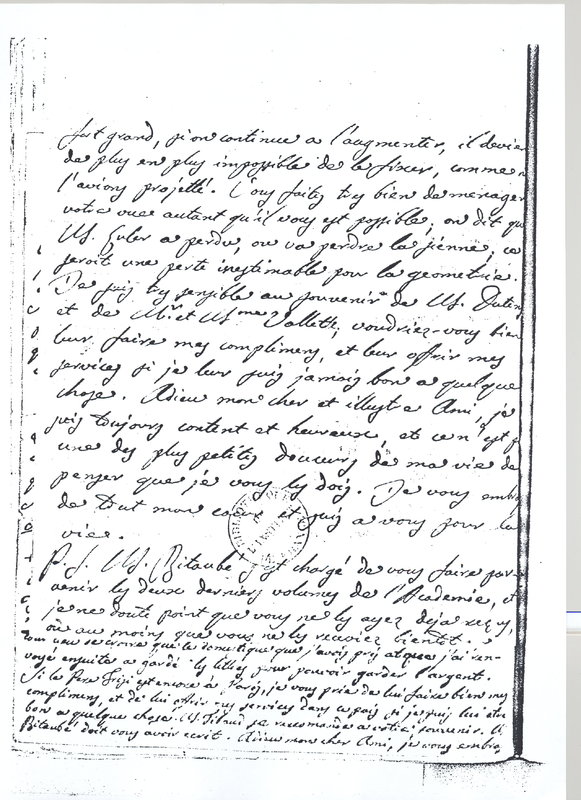 fort grand, si on continue a l'augmenter, il devien
de plus en plus impossible de le fixer, comme n
l'avions projetté. Vous faites tres bien de menager
votre vue autant qu'il vous est possible; on dit que
M. Euler a perdu, ou va perdre la sienne; ce
seroit une perte inestimable pour la geometrie.
Je suis tres sensible au souvenir de M. Dutens
et de Mr. et Mme Vallette; voudriez-vous bien
leur faire mes complimens, et leur offrir mes
services si je leur suis jamais bon a quelque
chose. Adieu mon cher et illustre Ami, je
suis toujours content et heureux, et ce n'est p
une des plus petites douceurs de ma vie de
penser que je vous les dois. Je vous embra
de tout mon coeur et suis a vous pour la
vie.
P. S. M. Bitaubé s'est chargé de vous faire par-
venir les deux derniers volumes de l'Academie, et
je ne doute point que vous ne les ayez deja reçus,
ou au moins que vous ne les receviez bientôt.
vous de croire que le domestique que j'avois pris et que j'ai ren-
voyé ensuite a gardé les lettres pour pouvoir garder l'argent.
Si le Pere Frisi est encore à Paris, je vous prie de lui faire bien mes
complimens, et de lui offrir mes services dans ce pais si je puis lui etre
bon a quelque chose. M. se recomande a votre souvenir. M.
Bitaubé doit vous avoir ecrit. Adieu mon cher Ami, je vous embras